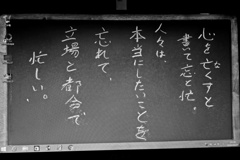 心を亡くすと
書いて忘と忙。
人々は、
本当にしたいことを
忘れて、
立場と都合で
忙しい。